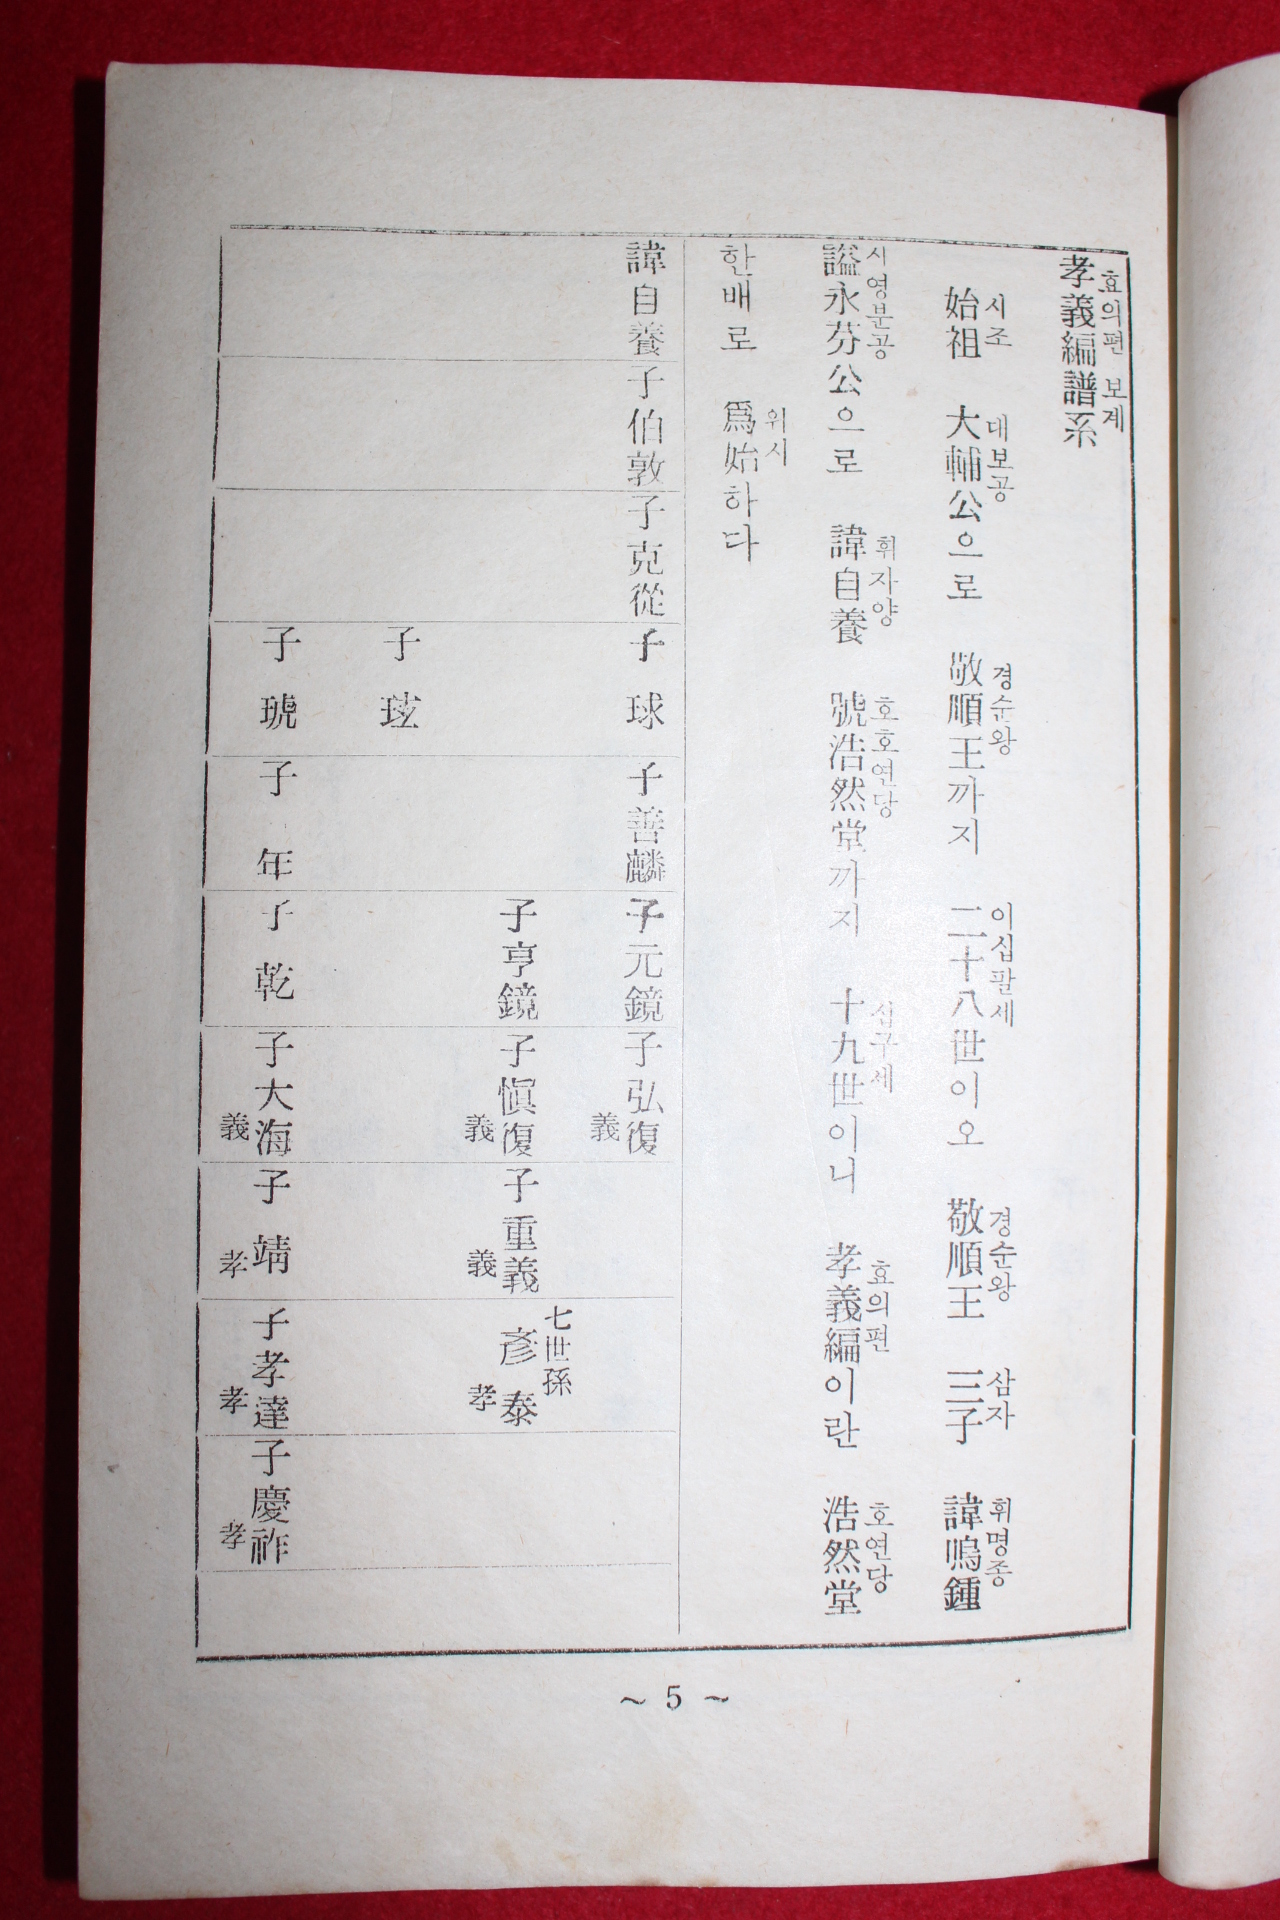 孝義編譜系
효의편 보계
始祖 大輔公으로 敬順王까지 二十八世이오 敬順王 三子 諱鳴鍾
시조 대보공 경순왕 이십팔세 경순왕 삼자 휘명종
諡永芬公으로 諱自養 號浩然堂까지 十九世이니 孝義編이란 浩然堂
시영분공 휘자양 호호연당 십구세 효의편 호연당
한배로 爲始하다
위시
諱自養
子伯敦
子克從
子球
子善麟
子元鏡
子弘復 義
子亨鏡
子愼復 義
子重義 義
七世孫 彦泰 孝
子玹
子琥
子年
子乾
子大海 義
子靖 孝
子孝達 孝
子慶祚 孝
~ 5 ~